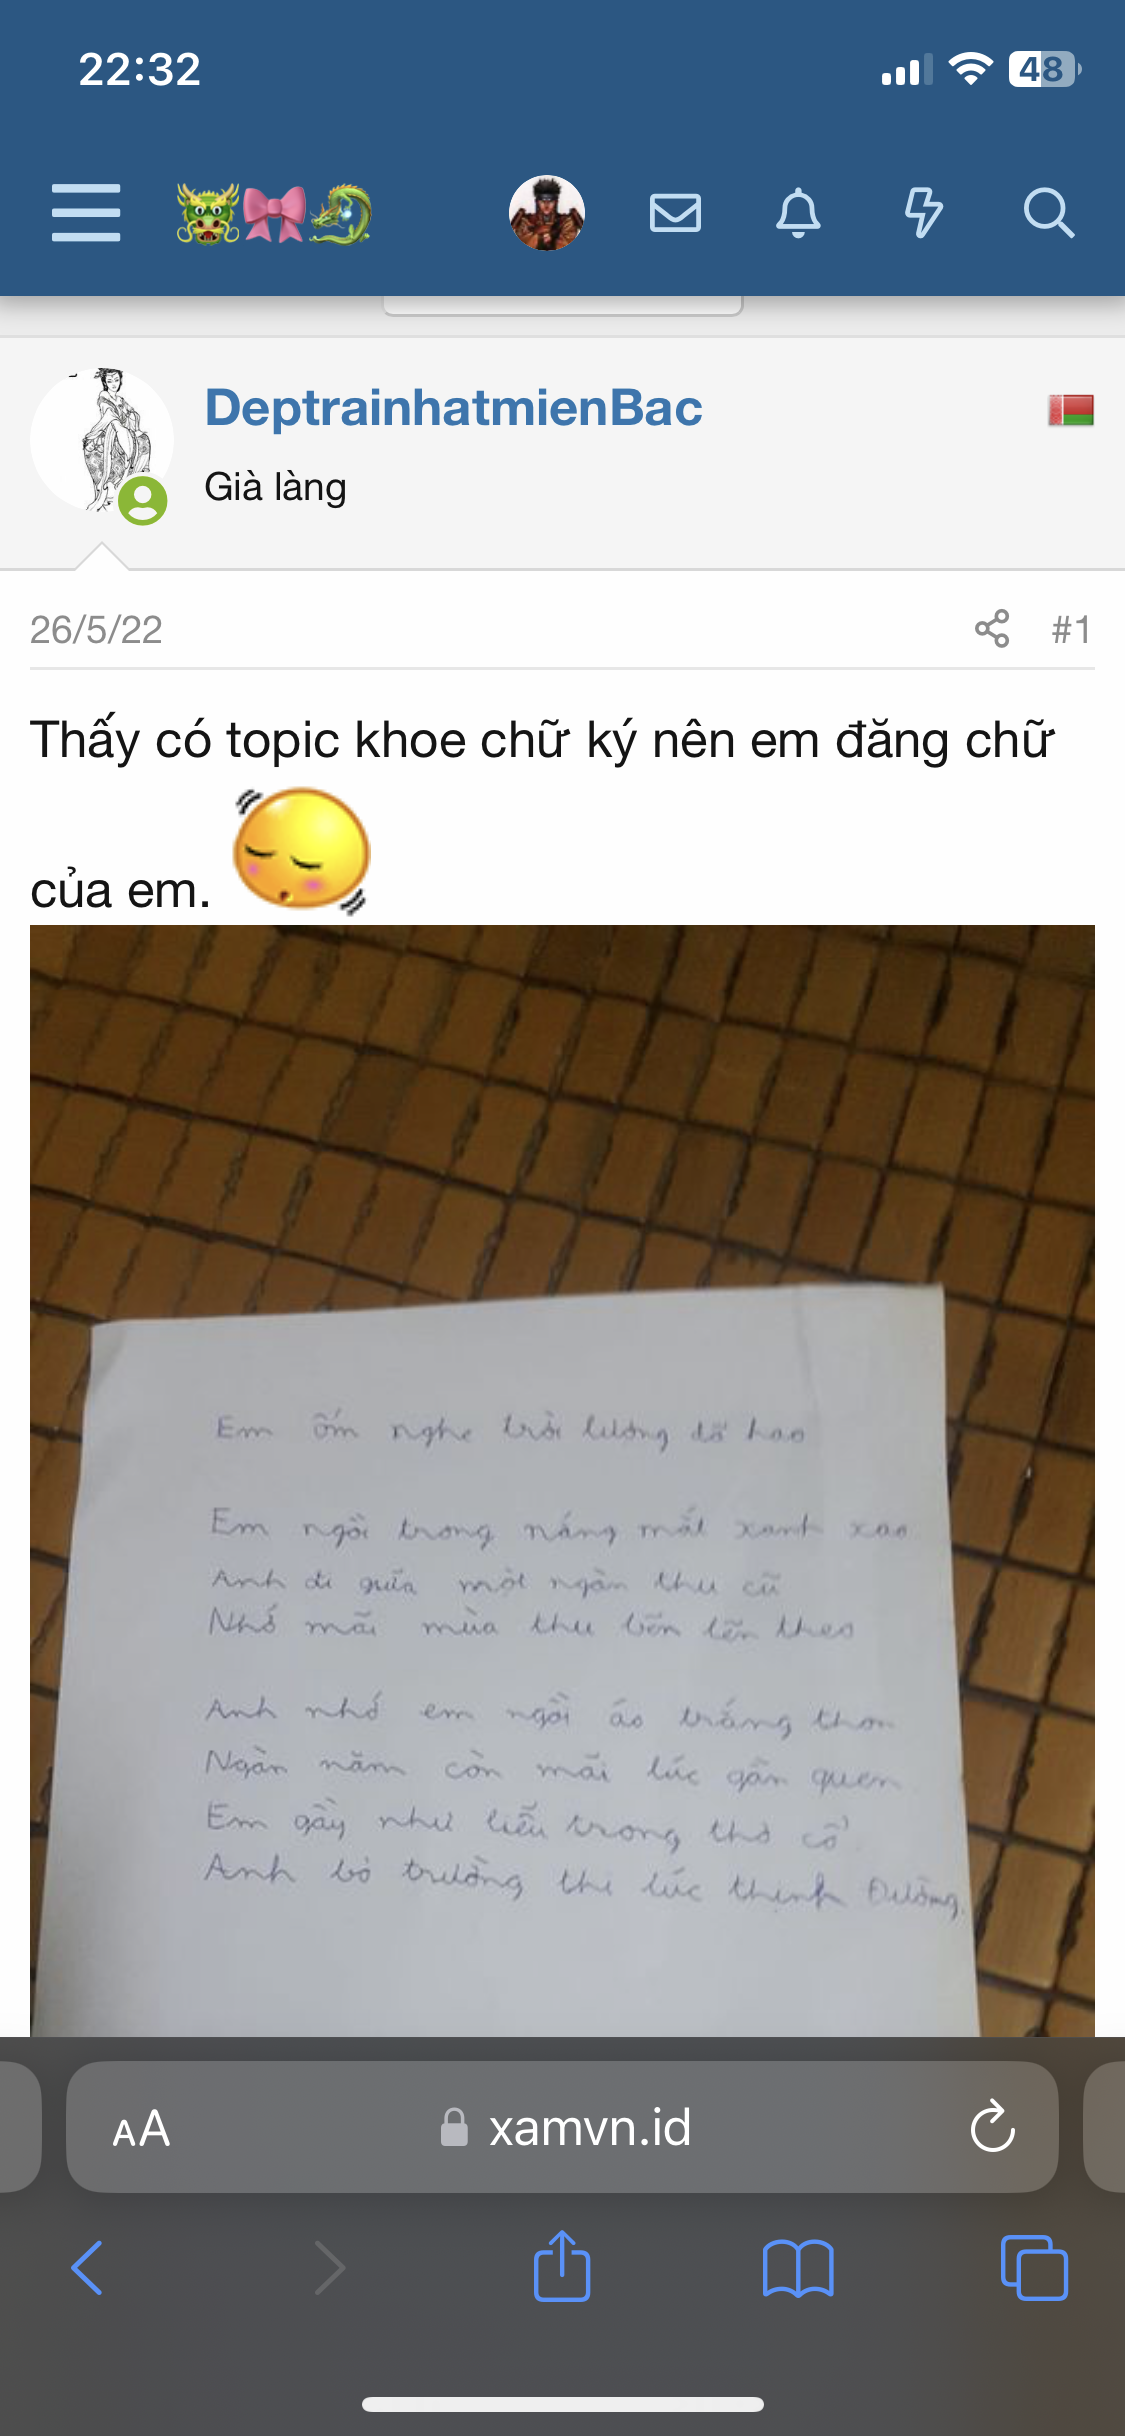 22:32
48
DeptrainhatmienBac
Già làng
26/5/22
#1
Thấy có topic khoe chữ ký nên em đăng chữ
của em.
Em ốm nghe trời lượng đã hao
Em ngồi trong nắng mắt xanh xao
Anh đi giữa một ngàn thu cũ
Nhớ mãi mùa thu bẽn lẽn theo
Anh nhớ em ngồi áo trắng thon
Ngàn năm còn mãi lúc gần quen
Em gầy như liễu trong thơ cổ
Anh bỏ trường thi lúc thịnh Đường.
AA
xamvn.id